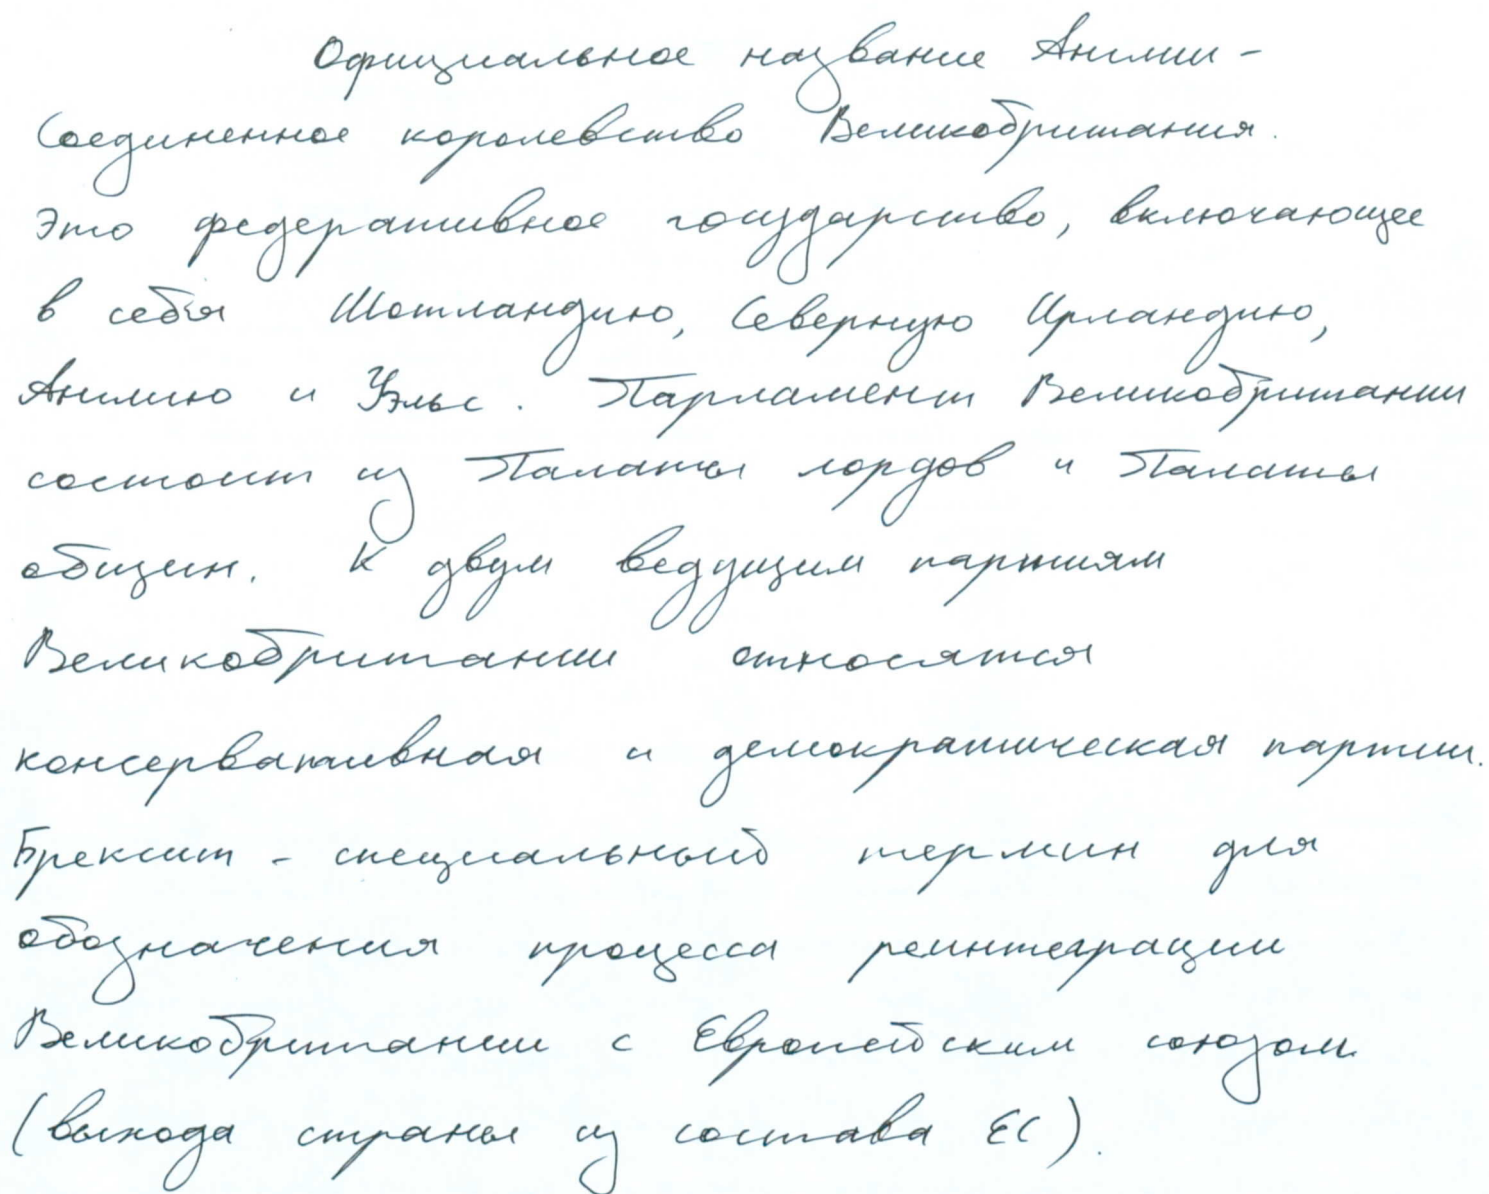 Официальное название Англии -
Соединенное королевство Великобритания.
Это федеративное государство, включающее
в себя Шотландию, Северную Ирландию,
Англию и Уэльс. Парламент Великобритании
состоит из Палаты лордов и Палаты
общин. К двум ведущим партиям
Великобритании относятся
консервативная и демократическая партии.
Брексит - специальный термин для
обозначения процесса реинтеграции
Великобритании с Европейским союзом
(выхода страны из состава ЕС).